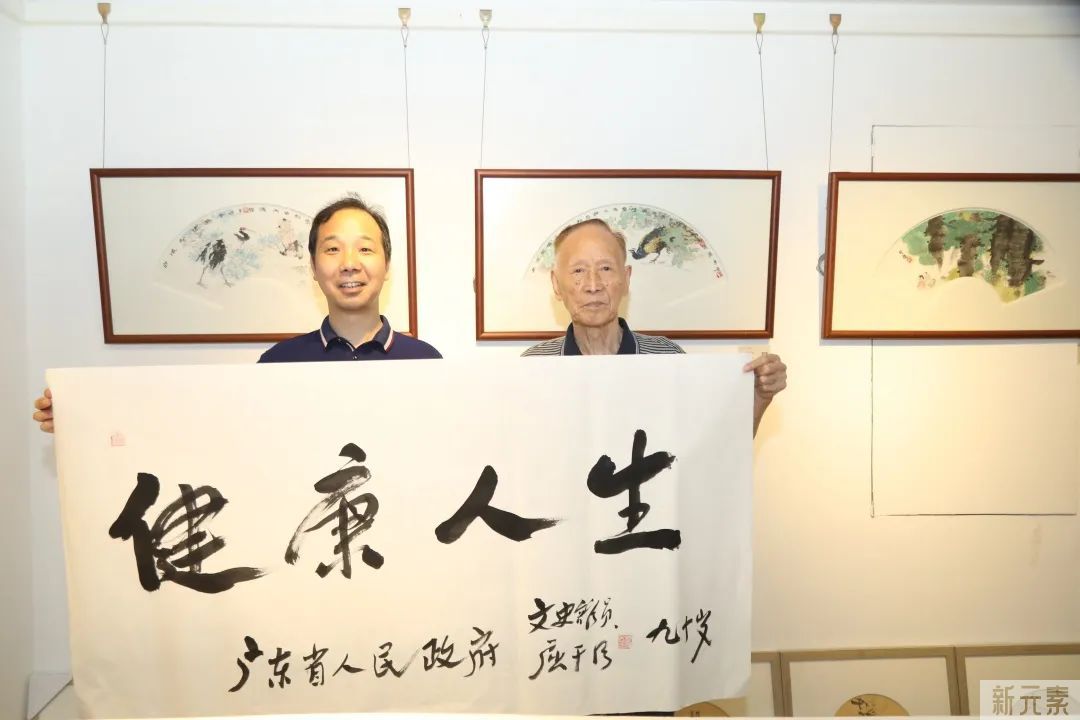 健康人生
广东省人民政府
文史馆员
九十岁
新元素